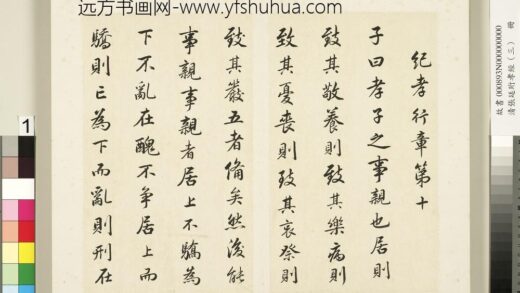 远方书画网-www.yfshuhua.com
紀孝行章第十
子曰孝子之事親也居則
致其敬養則致其樂病則
致其憂喪則致其哀祭則
致其嚴五者備矣然後能
事親事親者居上不驕為
下不亂在醜不爭居上而
驕則亡為下而亂則刑在
故書000893N000000000
清張廷玙孝經（三） 冊
1